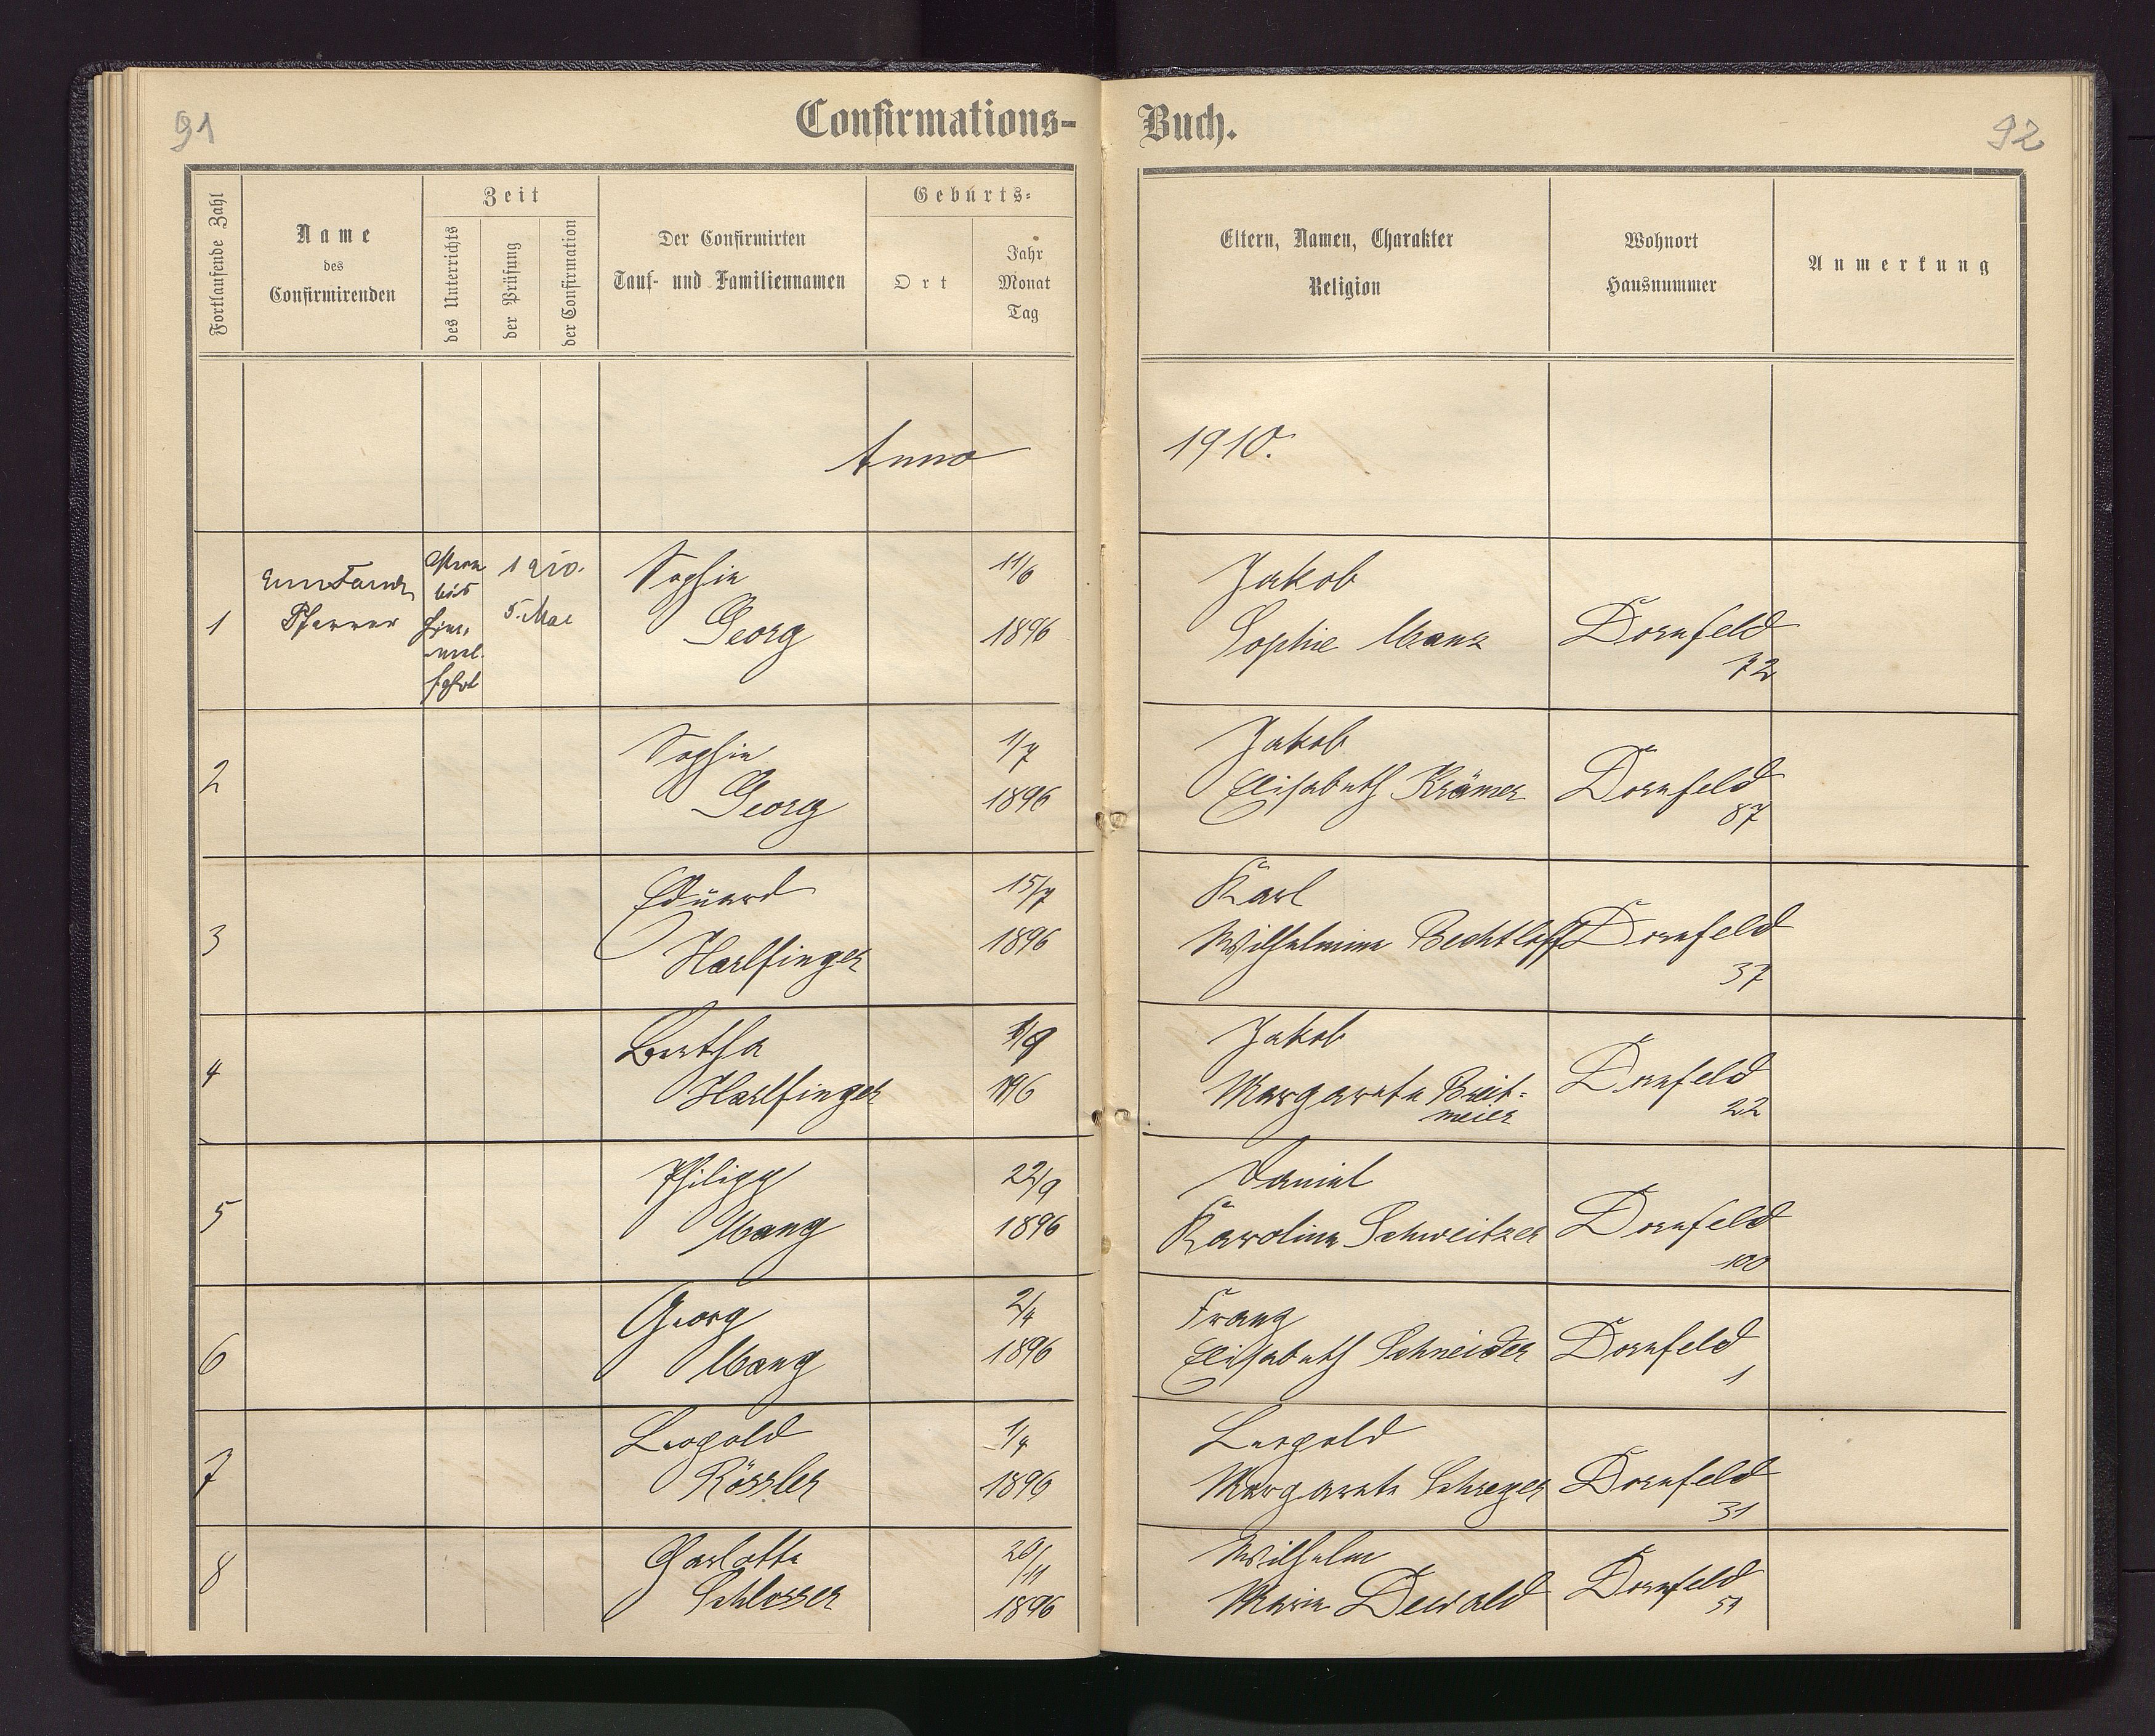 91
Confirmations-
Buch.
92
Fortlaufende Zahl
Name
des
Confirmirenden
Zeit
des Unterrichts
der Prüfung
der Confirmation
Der Confirmirten
Tauf- und Familiennamen
Geburts-
Ort
Jahr
Monat
Tag
Eltern, Namen, Charakter
Religion
Wohnort
Hausnummer
Anmerkung
Anno
1910.
1
Pfarrer
bis
Him-
mel-
fahrt
1910.
5. Mai
Sophie
Georg
11/6
1896
Jakob
Sophie Manz
Dornfeld
72
2
Sophie
Georg
1/7
1896
Jakob
Elisabeth Krämer
Dornfeld
87
3
Eduard
Harlfinger
15/7
1896
Karl
Wilhelmine Bechtloff
Dornfeld
37
4
Bertha
Harlfinger
/9
Jakob
Margareta Breit-
meier
Dornfeld
22
5
Philipp
Mang
22/9
1896
Daniel
Karoline Schweitzer
Dornfeld
100
6
Georg
Mang
2/4
1896
Franz
Elisabeth Schneider
Dornfeld
1
7
Leopold
Rössler
1/4
1896
Leopold
Margareta Schreyer
Dornfeld
31
8
Charlotte
Schlosser
20/11
1896
Wilhelm
Marie Dewald
Dornfeld
51